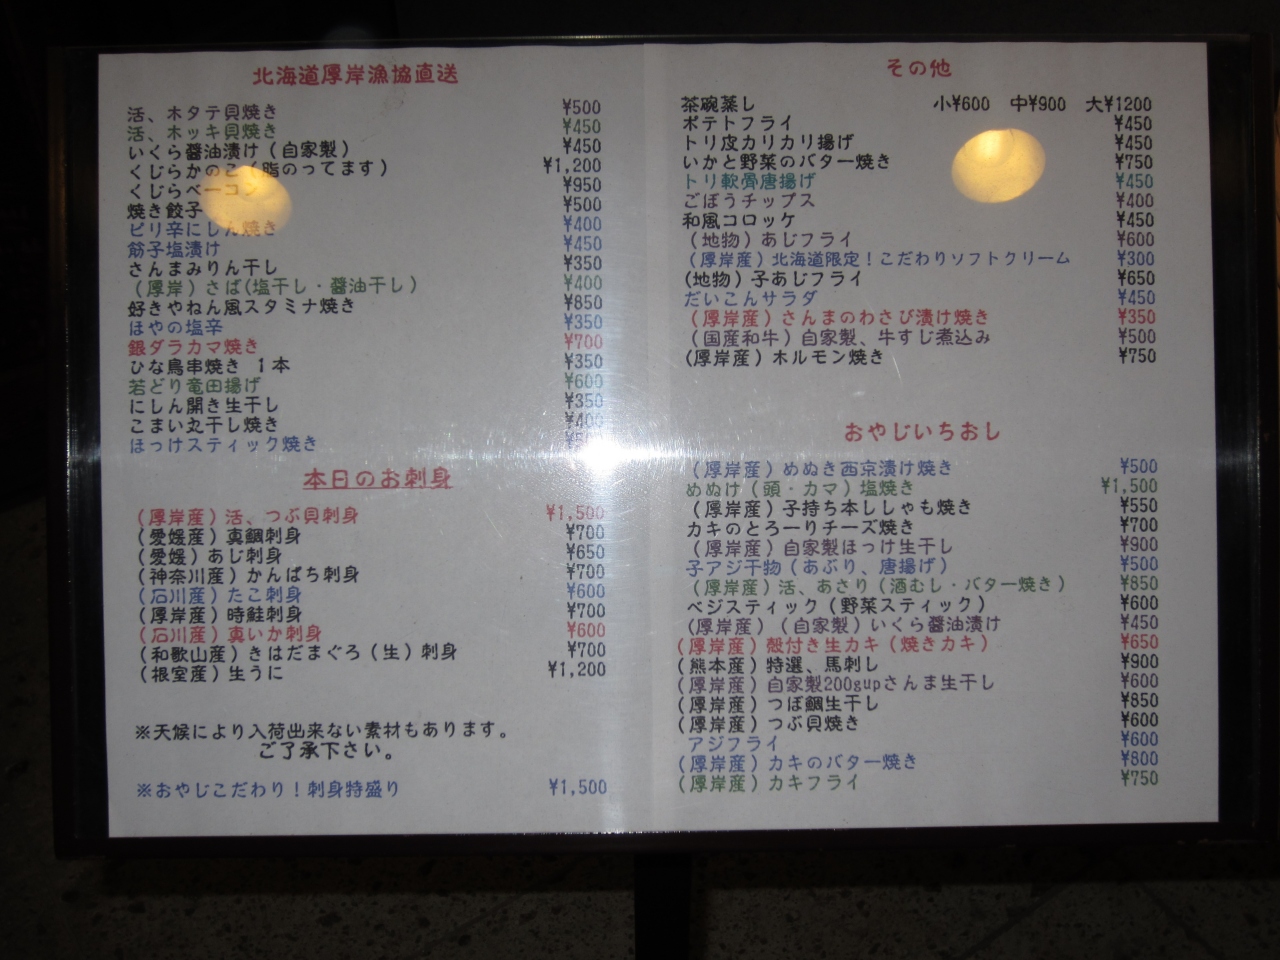 北海道厚岸漁協直送
活、ホタテ貝焼き ¥500
活、ホッキ貝焼き ¥450
いくら醤油漬け（自家製） ¥450
くじらかのこ（脂のってます） ¥1,200
くじらベーコン ¥950
焼き餃子 ¥500
ピリ辛にしん焼き ¥400
筋子塩漬け ¥450
さんまみりん干し ¥350
（厚岸）さば(塩干し・醤油干し） ¥400
好きやねん風スタミナ焼き ¥850
ほやの塩辛 ¥350
銀ダラカマ焼き ¥700
ひな鳥串焼き 1本 ¥350
若どり竜田揚げ ¥600
にしん開き生干し ¥350
こまい丸干し焼き ¥400
ほっけスティック焼き
本日のお刺身
（厚岸産）活、つぶ貝刺身 ¥1,500
（愛媛産）真鯛刺身 ¥700
（愛媛）あじ刺身 ¥650
（神奈川産）かんぱち刺身 ¥700
（石川産）たこ刺身 ¥600
（厚岸産）時鮭刺身 ¥700
（石川産）真いか刺身 ¥600
（和歌山産）きはだまぐろ（生）刺身 ¥700
（根室産）生うに ¥1,200
※天候により入荷出来ない素材もあります。
ご了承下さい。
※おやじこだわり！刺身特盛り ¥1,500
その他
茶碗蒸し 小¥600 中¥900 大¥1200
ポテトフライ ¥450
トリ皮カリカリ揚げ ¥450
いかと野菜のバター焼き ¥750
トリ軟骨唐揚げ ¥450
ごぼうチップス ¥400
和風コロッケ ¥450
（地物）あじフライ ¥600
（厚岸産）北海道限定！こだわりソフトクリーム ¥300
(地物）子あじフライ ¥650
だいこんサラダ ¥450
（厚岸産）さんまのわさび漬け焼き ¥350
（国産和牛）自家製、牛すじ煮込み ¥500
(厚岸産）ホルモン焼き ¥750
おやじいちおし
（厚岸産）めぬき西京漬け焼き ¥500
めぬけ（頭・カマ）塩焼き ¥1,500
（厚岸産）子持ち本ししゃも焼き ¥550
カキのとろーりチーズ焼き ¥700
（厚岸産）自家製ほっけ生干し ¥900
子アジ干物（あぶり、唐揚げ） ¥500
（厚岸産）活、あさり（酒むし・バター焼き） ¥850
ベジスティック（野菜スティック） ¥600
（厚岸産）（自家製）いくら醤油漬け ¥450
（厚岸産）殻付き生カキ（焼きカキ） ¥650
（熊本産）特選、馬刺し ¥900
（厚岸産）自家製200gupさんま生干し ¥600
（厚岸産）つぼ鯛生干し ¥850
（厚岸産）つぶ貝焼き ¥600
アジフライ ¥600
（厚岸産）カキのバター焼き ¥800
（厚岸産）カキフライ ¥750